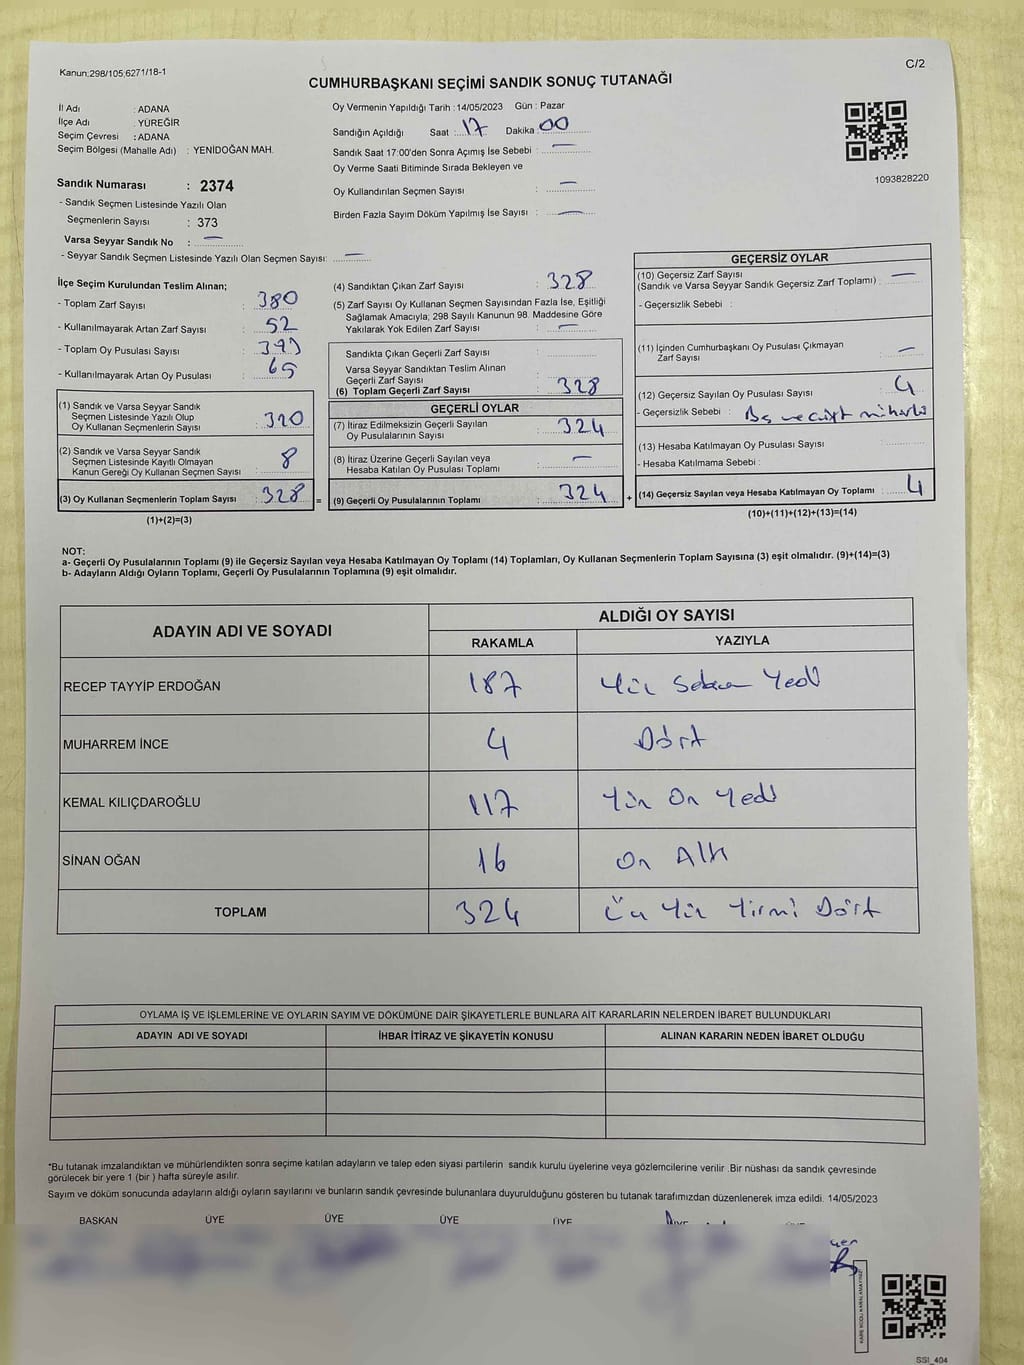 Kanun:298/105;6271/18-1
C/2
CUMHURBAŞKANI SEÇİMİ SANDIK SONUÇ TUTANAĞI
İl Adı : ADANA
İlçe Adı : YÜREĞİR
Seçim Çevresi : ADANA
Seçim Bölgesi (Mahalle Adı) : YENİDOĞAN MAH.
Sandık Numarası : 2374
- Sandık Seçmen Listesinde Yazılı Olan
Seçmenlerin Sayısı : 373
Varsa Seyyar Sandık No : —
- Seyyar Sandık Seçmen Listesinde Yazılı Olan Seçmen Sayısı: —
Oy Vermenin Yapıldığı Tarih : 14/05/2023 Gün : Pazar
Sandığın Açıldığı Saat : 17 Dakika : 00
Sandık Saat 17:00'den Sonra Açımış İse Sebebi : —
Oy Verme Saati Bitiminde Sırada Bekleyen ve
Oy Kullandırılan Seçmen Sayısı : —
Birden Fazla Sayım Döküm Yapılmış İse Sayısı : —
1093828220
İlçe Seçim Kurulundan Teslim Alınan;
- Toplam Zarf Sayısı : 380
- Kullanılmayarak Artan Zarf Sayısı : 52
- Toplam Oy Pusulası Sayısı : 393
- Kullanılmayarak Artan Oy Pusulası : 65
(1) Sandık ve Varsa Seyyar Sandık
Seçmen Listesinde Yazılı Olup
Oy Kullanan Seçmenlerin Sayısı : 320
(2) Sandık ve Varsa Seyyar Sandık
Seçmen Listesinde Kayıtlı Olmayan
Kanun Gereği Oy Kullanan Seçmen Sayısı : 8
(3) Oy Kullanan Seçmenlerin Toplam Sayısı : 328 =
(1)+(2)=(3)
(4) Sandıktan Çıkan Zarf Sayısı : 328
(5) Zarf Sayısı Oy Kullanan Seçmen Sayısından Fazla İse, Eşitliği
Sağlamak Amacıyla; 298 Sayılı Kanunun 98. Maddesine Göre
Yakılarak Yok Edilen Zarf Sayısı : —
Sandıkta Çıkan Geçerli Zarf Sayısı :
Varsa Seyyar Sandıktan Teslim Alınan
Geçerli Zarf Sayısı :
(6) Toplam Geçerli Zarf Sayısı : 328
GEÇERLİ OYLAR
(7) İtiraz Edilmeksizin Geçerli Sayılan
Oy Pusulalarının Sayısı : 324
(8) İtiraz Üzerine Geçerli Sayılan veya
Hesaba Katılan Oy Pusulası Toplamı : —
(9) Geçerli Oy Pusulalarının Toplamı : 324 +
GEÇERSİZ OYLAR
(10) Geçersiz Zarf Sayısı
(Sandık ve Varsa Seyyar Sandık Geçersiz Zarf Toplamı) : —
- Geçersizlik Sebebi :
(11) İçinden Cumhurbaşkanı Oy Pusulası Çıkmayan
Zarf Sayısı : —
(12) Geçersiz Sayılan Oy Pusulası Sayısı : 4
- Geçersizlik Sebebi : Boş ve çift mühürlü
(13) Hesaba Katılmayan Oy Pusulası Sayısı :
- Hesaba Katılmama Sebebi :
(14) Geçersiz Sayılan veya Hesaba Katılmayan Oy Toplamı : 4
(10)+(11)+(12)+(13)=(14)
NOT:
a- Geçerli Oy Pusulalarının Toplamı (9) ile Geçersiz Sayılan veya Hesaba Katılmayan Oy Toplamı (14) Toplamları, Oy Kullanan Seçmenlerin Toplam Sayısına (3) eşit olmalıdır. (9)+(14)=(3)
b- Adayların Aldığı Oyların Toplamı, Geçerli Oy Pusulalarının Toplamına (9) eşit olmalıdır.
ADAYIN ADI VE SOYADI ALDIĞI OY SAYISI
RAKAMLA YAZIYLA
RECEP TAYYİP ERDOĞAN 187 Yüz Seksen Yedi
MUHARREM İNCE 4 Dört
KEMAL KILIÇDAROĞLU 117 Yüz On Yedi
SİNAN OĞAN 16 On Altı
TOPLAM 324 Üç Yüz Yirmi Dört
OYLAMA İŞ VE İŞLEMLERİNE VE OYLARIN SAYIM VE DÖKÜMÜNE DAİR ŞİKAYETLERLE BUNLARA AİT KARARLARIN NELERDEN İBARET BULUNDUKLARI
ADAYIN ADI VE SOYADI İHBAR İTİRAZ VE ŞİKAYETİN KONUSU ALINAN KARARIN NEDEN İBARET OLDUĞU
*Bu tutanak imzalandıktan ve mühürlendikten sonra seçime katılan adayların ve talep eden siyasi partilerin sandık kurulu üyelerine veya gözlemcilerine verilir .Bir nüshası da sandık çevresinde
görülecek bir yere 1 (bir ) hafta süreyle asılır.
Sayım ve döküm sonucunda adayların aldığı oyların sayılarını ve bunların sandık çevresinde bulunanlara duyurulduğunu gösteren bu tutanak tarafımızdan düzenlenerek imza edildi. 14/05/2023
BAŞKAN ÜYE ÜYE ÜYE ÜYE
KARE KODU KARALAMAYINIZ!
SSI_404